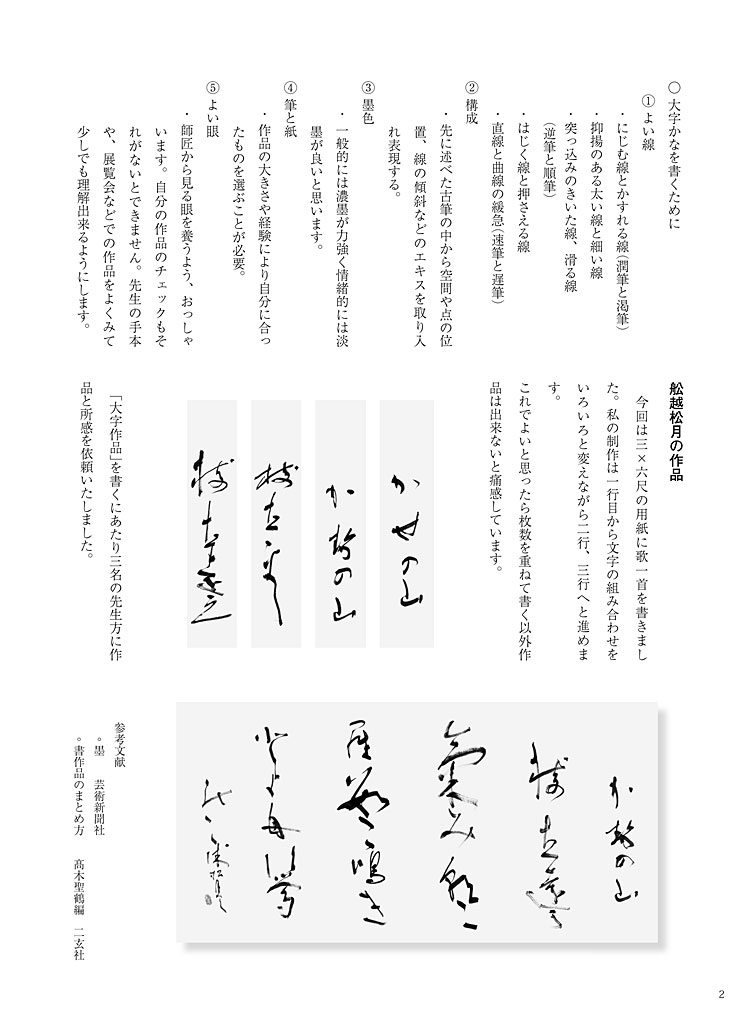 ○ 大字かなを書くために
① よい線
・にじむ線とかすれる線(潤筆と渇筆)
・抑揚のある太い線と細い線
・突っ込みのきいた線、滑る線
(逆筆と順筆)
・はじく線と押さえる線
・直線と曲線の緩急(速筆と遅筆)
② 構成
・先に述べた古筆の中から空間や点の位
置、線の傾斜などのエキスを取り入
れ表現する。
③ 墨色
・一般的には濃墨が力強く情緒的には淡
墨が良いと思います。
④ 筆と紙
・作品の大きさや経験により自分に合っ
たものを選ぶことが必要。
⑤ よい眼
・師匠から見る眼を養うよう、おっしゃ
います。自分の作品のチェックもそ
れがないとできません。先生の手本
や、展覧会などでの作品をよくみて
少しでも理解出来るようにします。
舩越松月の作品
今回は三×六尺の用紙に歌一首を書きまし
た。私の制作は一行目から文字の組み合わせを
いろいろと変えながら二行、三行へと進めま
す。
これでよいと思ったら枚数を重ねて書く以外作
品は出来ないと痛感しています。
かせの山
「大字作品」を書くにあたり三名の先生方に作
品と所感を依頼いたしました。
参考文献
◦墨 芸術新聞社
◦書作品のまとめ方 髙木聖鶴編 二玄社
2